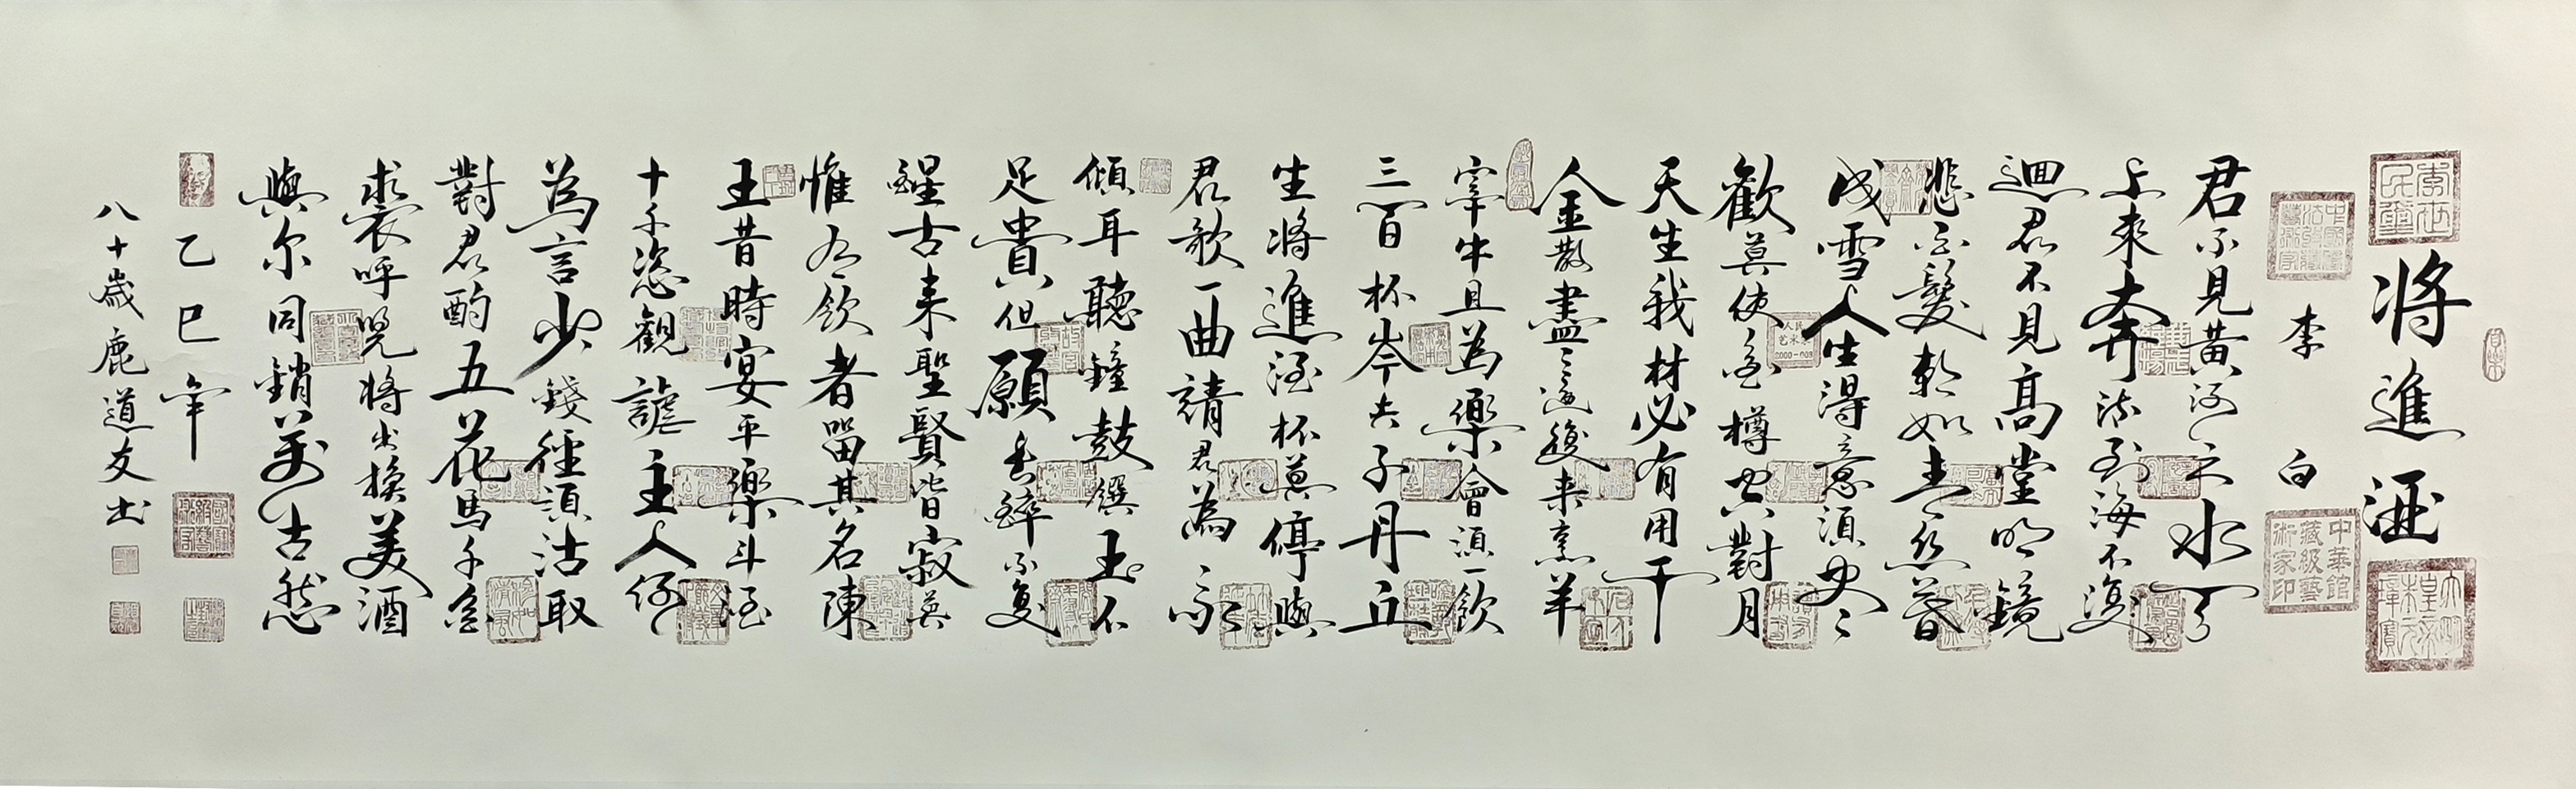 將進酒
李白
君不見黃河之水天
上來奔流到海不復
迴君不見高堂明鏡
悲白髮朝如青絲暮
成雪人生得意須盡
歡莫使金樽空對月
天生我材必有用千
金散盡還復来烹羊
宰牛且為樂會須一飲
三百杯岑夫子丹丘
生將進酒杯莫停與
君歌一曲請君為我
傾耳聽鐘鼓饌玉不
足貴但願長醉不復
醒古来聖賢皆寂莫
惟有飲者留其名陳
王昔時宴平樂斗酒
十千恣觀謔主人何
為言少錢徑須沽取
對君酌五花馬千金
裘呼兒將出換美酒
與尔同銷萬古愁
乙巳年
八十歲鹿道友书
中華館藏級藝術家印